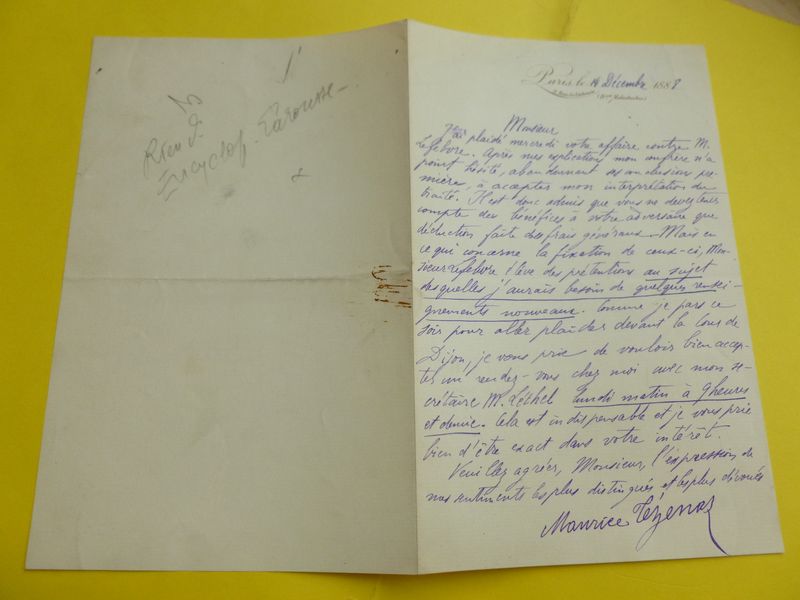 Rien d.
Encyclop. Larousse
Paris le 14 Décembre 1888
Monsieur
J'ai plaidé mercredi votre affaire contre M.
Lefebvre. Après mes explications mon confrère n'a
point hésité, abandonnant ses conclusions pre-
mière, à accepter mon interprétation du
traité. Il est donc admis que vous ne devez tenir
compte des bénéfices à votre adversaire que
déduction faite des frais généraux. Mais en
ce qui concerne la fixation de ceux-ci, Mon-
sieur Lefebvre élève des prétentions au sujet
desquelles j'aurais besoin de quelques rensei-
gnements nouveaux. Comme je pars ce
soir pour aller plaider devant la Cour de
Dijon, je vous prie de vouloir bien accep-
ter un rendez-vous chez moi avec mon se-
crétaire M. Léthel lundi matin à 9 heures
et demie. Cela est indispensable et je vous prie
bien d'être exact dans votre intérêt.
Veuillez agréer, Monsieur, l'expression de
nos sentiments les plus distingués et les plus dévoués
Maurice Tézenas